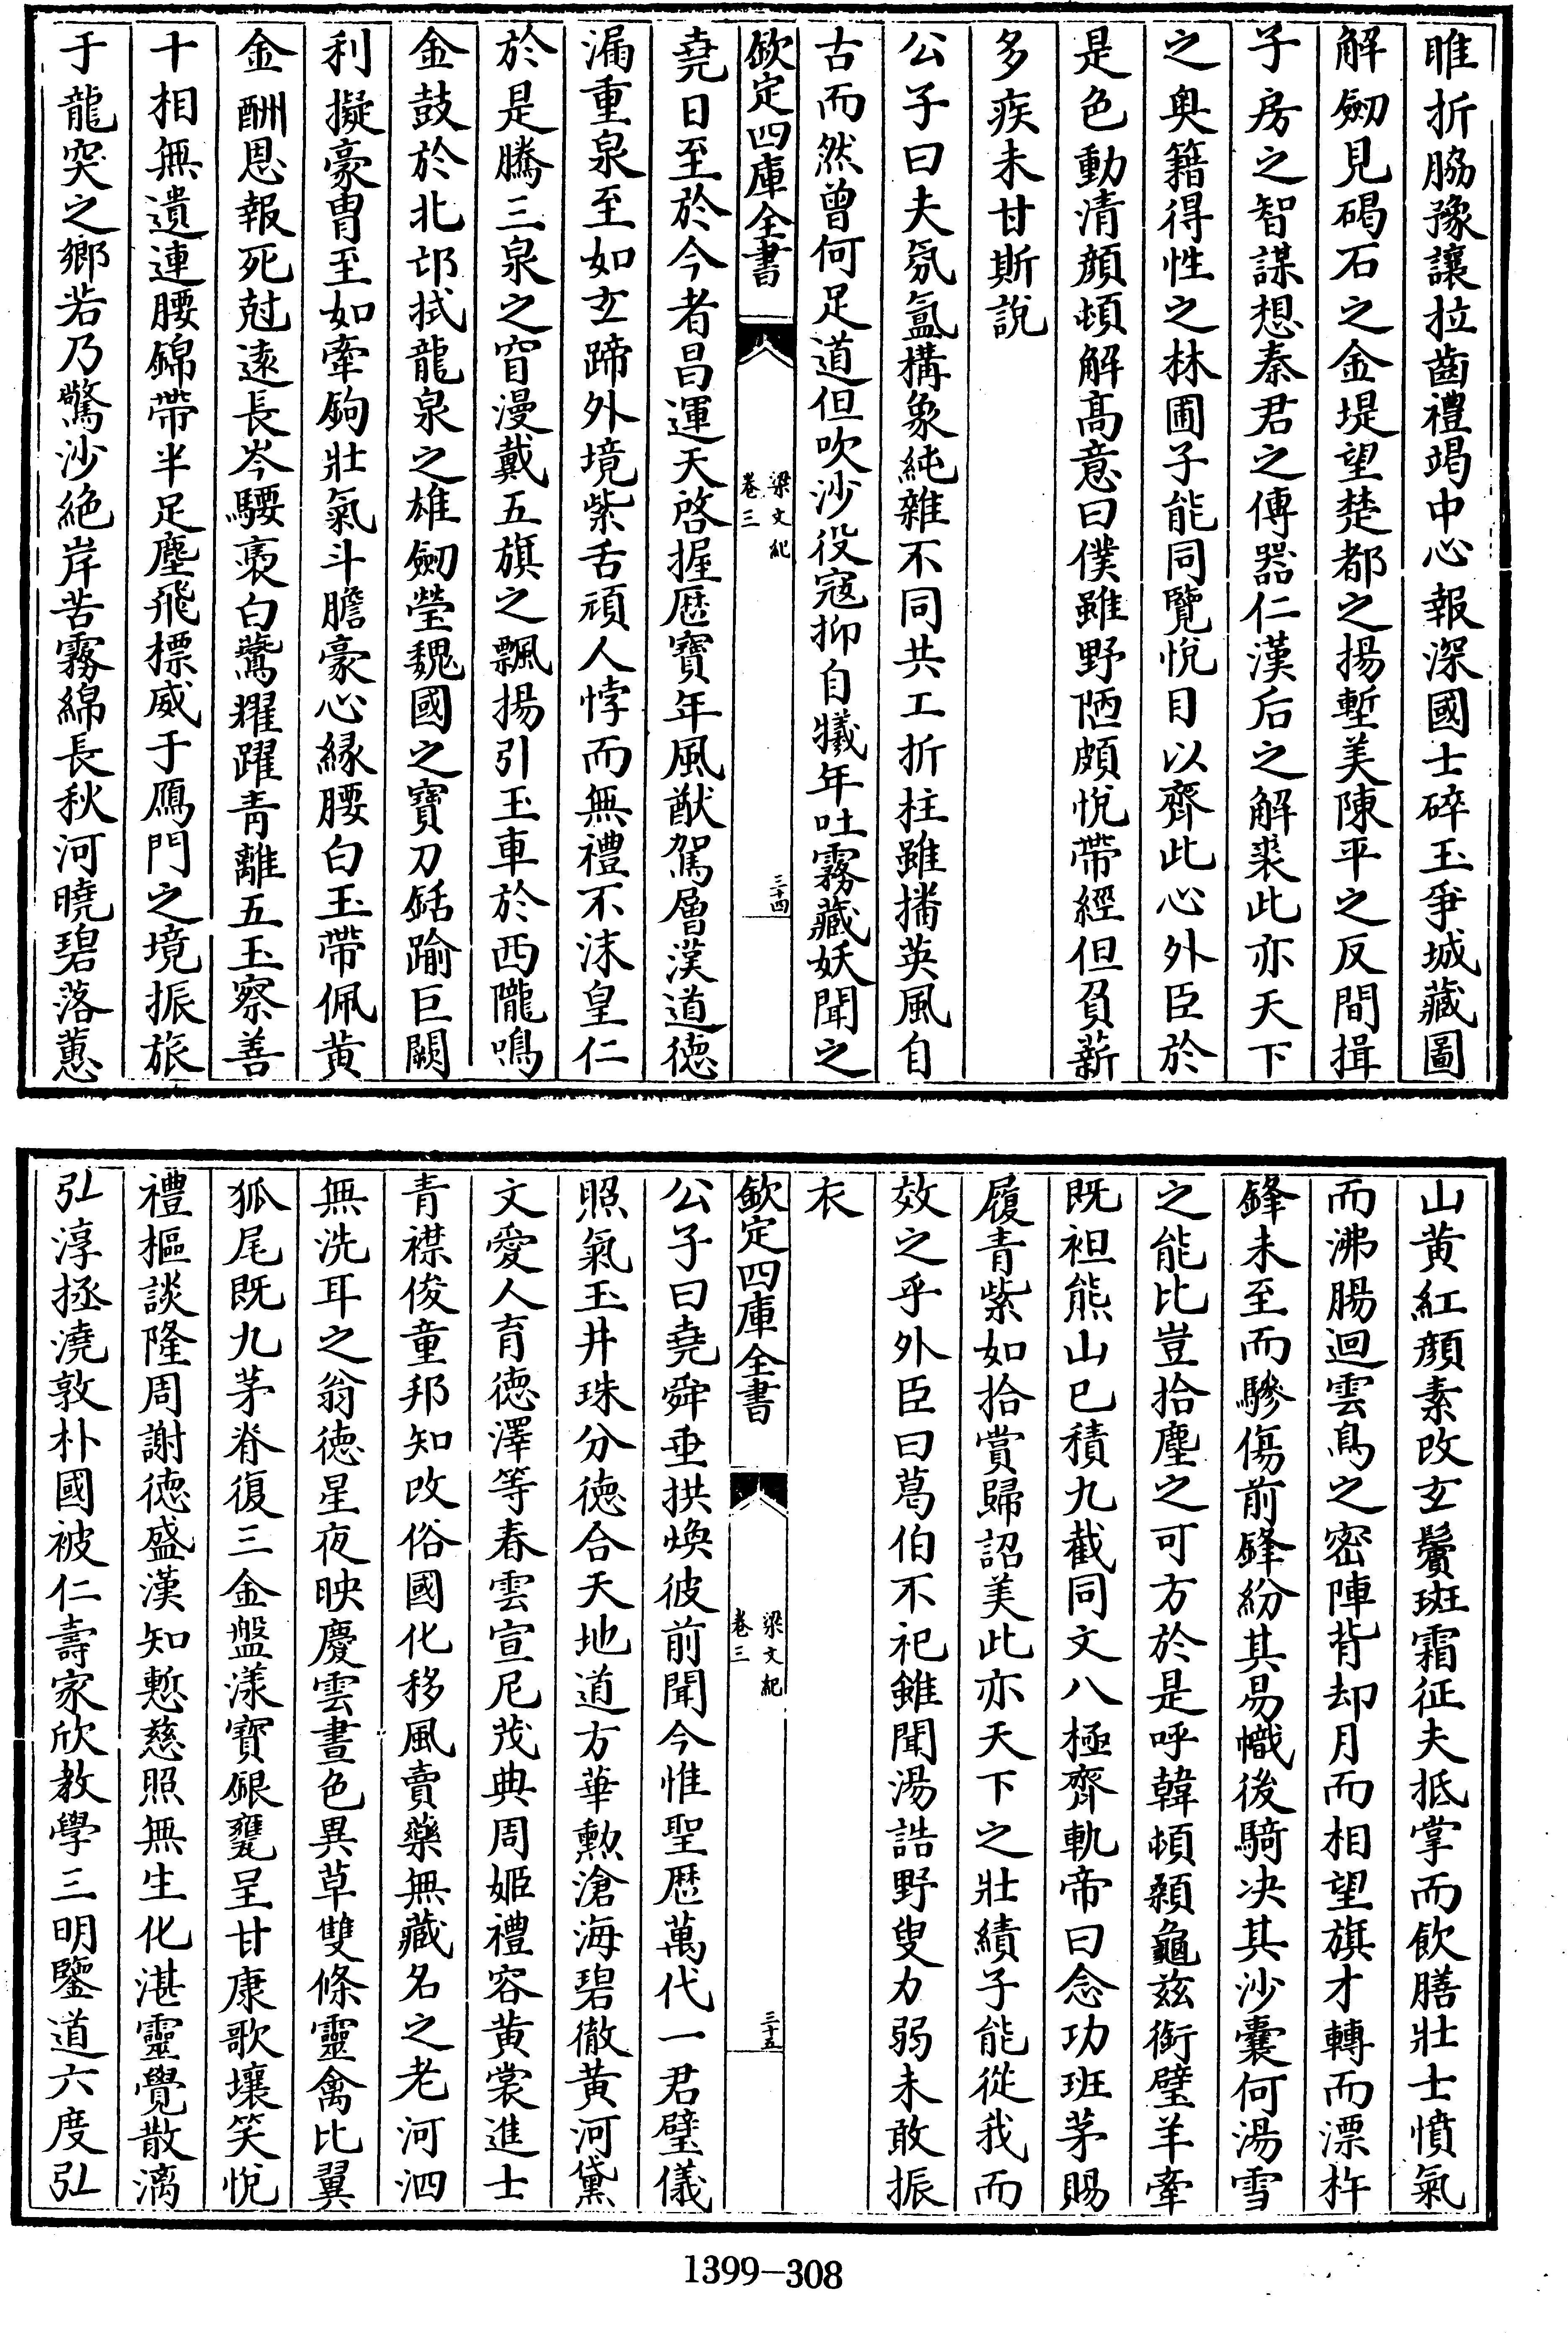 睢折脇豫讓拉齒禮竭中心報深國士碎玉爭城藏圖
解劒見碣石之金堤望楚都之揚塹美陳平之反間揖
子房之智謀想秦君之傳器仁漢后之解裘此亦天下
之奥籍得性之林圃子能同覽悅目以齊此心外臣於
是色動清顔頓解髙意曰僕雖野陋頗悅帶經但負薪
多疾未甘斯說
公子曰夫氛氳構象純雜不同共工折柱雖播英風自
古而然曾何足道但吹沙役寇抑自犧年吐霧藏妖聞之
欽定四庫全書
梁文紀
卷三
三十四
堯日至於今者昌運天啓握歴寶年風猷駕層漢道徳
漏重泉至如玄蹄外境紫舌頑人悖而無禮不沫皇仁
於是騰三泉之窅漫戴五旗之飄揚引玉車於西隴鳴
金鼓於北邙拭龍泉之雄劒瑩魏國之寶刀銛踰巨闕
利擬豪胄至如牽鉤壯氣斗膽豪心縁腰白玉帶佩黄
金酬恩報死尅逺長岑騕褭白鷰耀躍青離五玉察善
十相無遺連腰錦帶半足塵飛標威于鴈門之境振旅
于龍突之鄉若乃驚沙絶岸苦霧綿長秋河曉碧落蕙
山黄紅顔素改玄鬢斑霜征夫抵掌而飲膳壯士憤氣
而沸腸迴雲鳥之密陣背却月而相望旗才轉而漂杵
鋒未至而驂傷前鋒紛其易幟後騎决其沙囊何湯雪
之能比豈拾塵之可方於是呼韓頓顙龜兹銜璧羊牽
既袒熊山已積九截同文八極齊軌帝曰念功班茅賜
履青紫如拾賞歸詔美此亦天下之壯績子能從我而
效之乎外臣曰葛伯不祀雖聞湯誥野叟力弱未敢振
衣
欽定四庫全書
梁文紀
卷三
三十五
公子曰堯舜垂拱煥彼前聞今惟聖歴萬代一君璧儀
照氣玉井珠分徳合天地道方華勲滄海碧徹黄河黛
文愛人育徳澤等春雲宣尼茂典周姬禮容黄裳進士
青襟俊童邦知改俗國化移風賣藥無藏名之老河泗
無洗耳之翁徳星夜映慶雲晝色異草雙條靈禽比翼
狐尾既九茅脊復三金盤漾寳銀甕呈甘康歌壤笑悅
禮樞談隆周謝德盛漢知慙慈照無生化湛靈覺散漓
弘淳拯澆敦朴國被仁壽家欣教學三明鑒道六度弘
1399-308